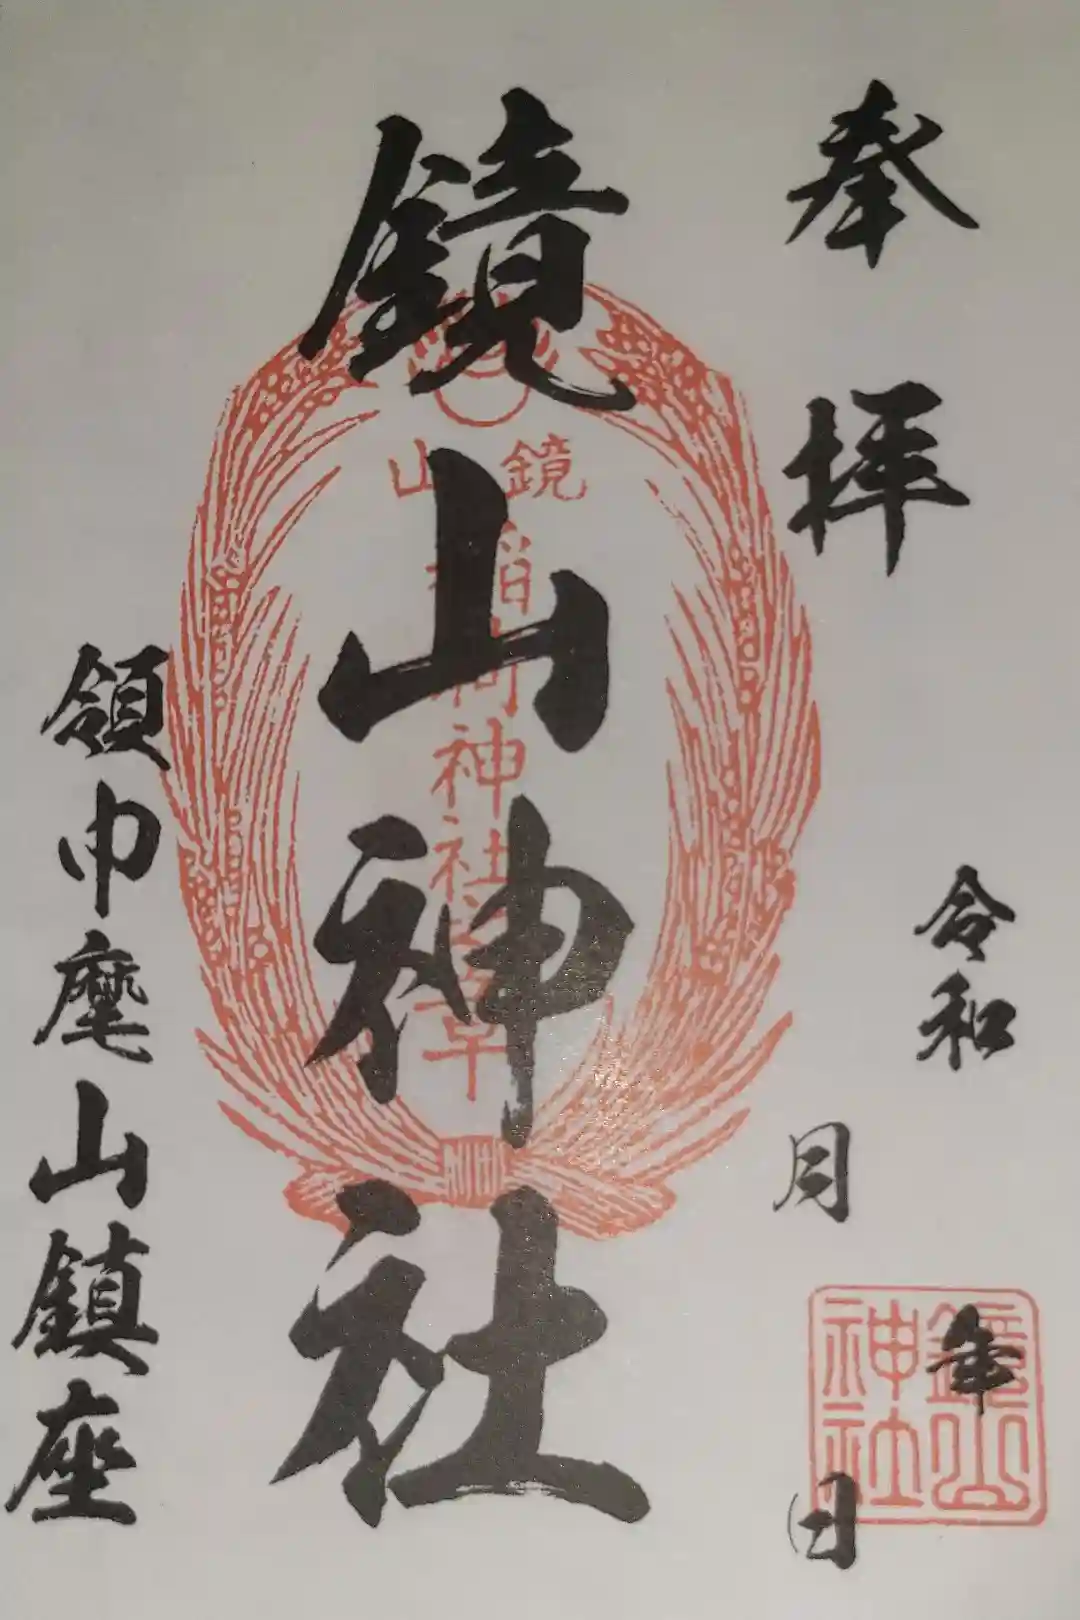 奉拝
令和
年
月
日
鏡山神社
鏡山
稲荷神社之章
鏡山神社
領巾麾山鎮座